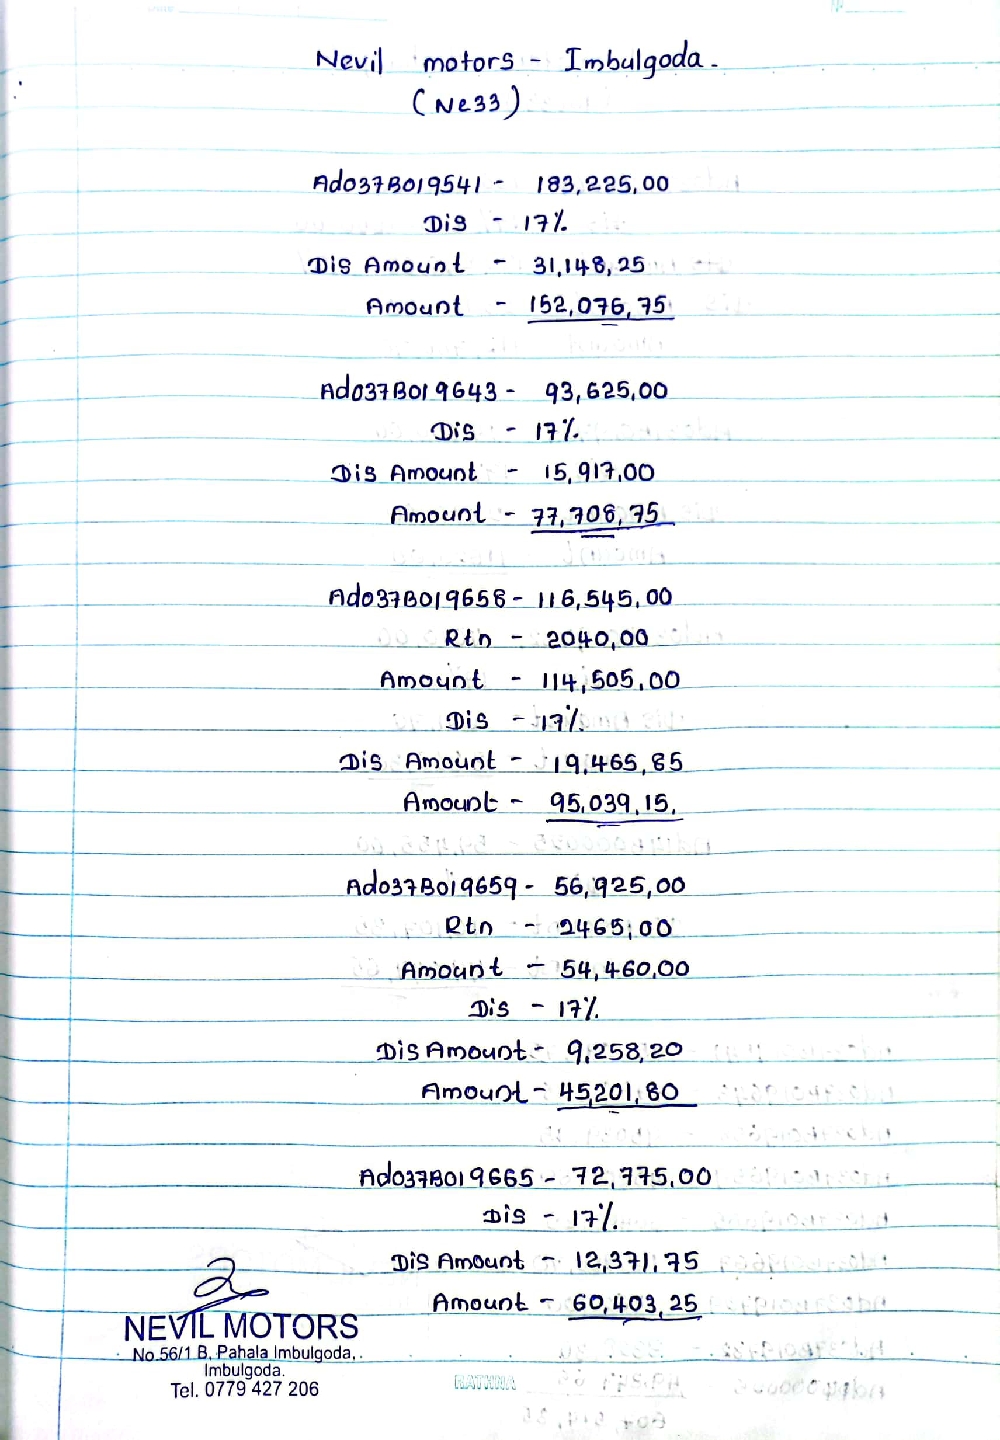 Nevil motors - Imbulgoda.
(Ne33)
Ado37B019541 - 183,225,00
Dis - 17%
Dis Amount - 31,148,25
Amount - 152,076,75
Ado37B019643 - 93,625,00
Dis - 17%
Dis Amount - 15,917,00
Amount - 77,708,75
Ado37B019658 - 116,545,00
Rtn - 2040,00
Amount - 114,505,00
Dis - 17%
Dis Amount - 19,465,85
Amount - 95,039,15,
Ado37B019659 - 56,925,00
Rtn - 2465,00
Amount - 54,460,00
Dis - 17%
Dis Amount - 9,258,20
Amount - 45,201,80
Ado37B019665 - 72,775,00
Dis - 17%
Dis Amount - 12,371,75
Amount - 60,403,25
NEVIL MOTORS
No.56/1 B, Pahala Imbulgoda,
Imbulgoda.
Tel. 0779 427 206
RATHNA